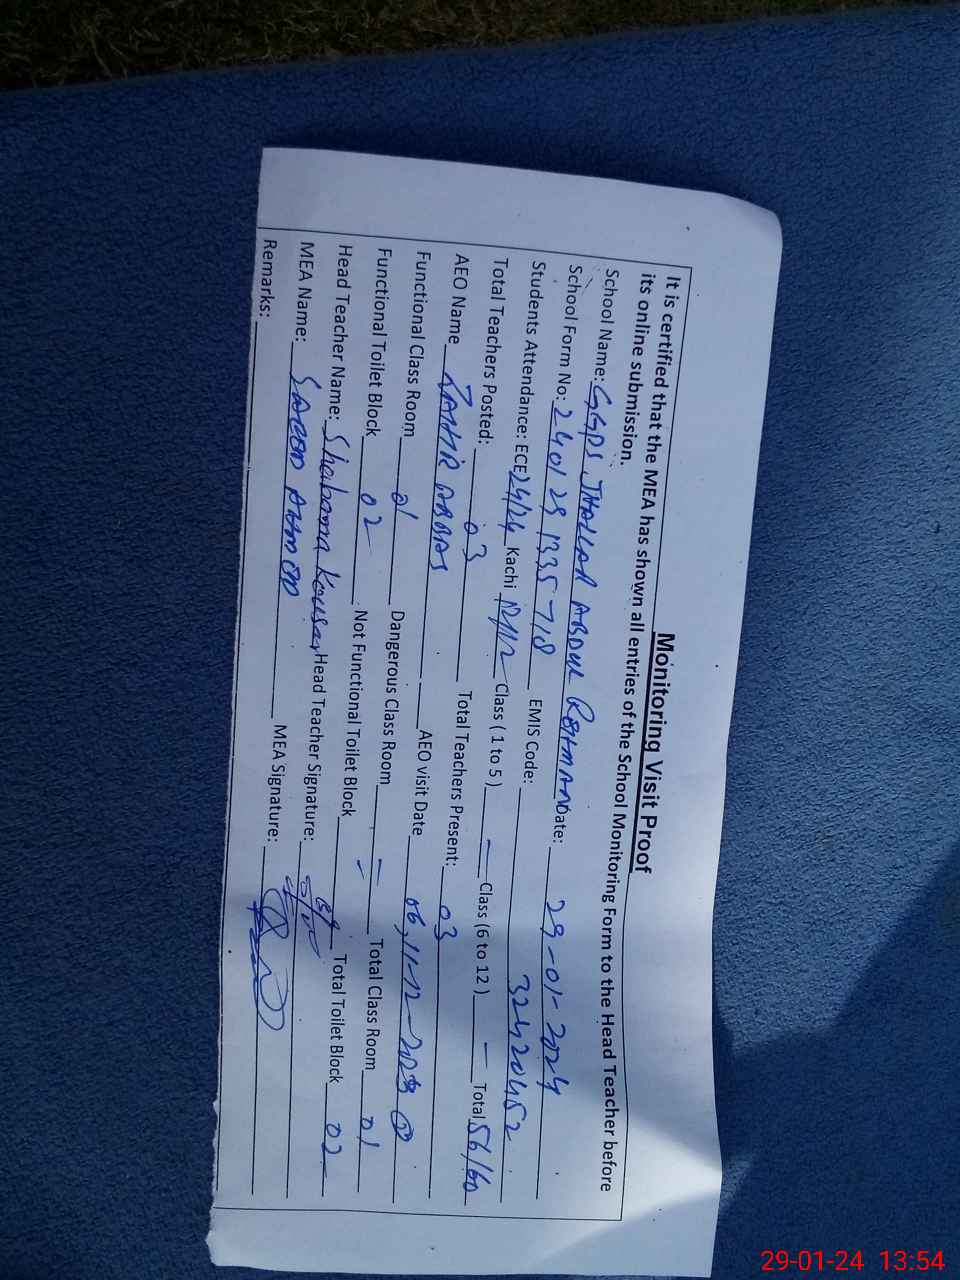 Monitoring Visit Proof
It is certified that the MEA has shown all entries of the School Monitoring Form to the Head Teacher before
its online submission.
School Name: GGPS JHALLAR ABDUL REHMAN Date: 29-01-2024
School Form No: 240129 1335 718 EMIS Code: 32420452
Students Attendance: ECE 24/24 Kachi 12/12 Class ( 1 to 5 ) — Class (6 to 12 ) — Total 56/60
Total Teachers Posted: 03 Total Teachers Present: 03
AEO Name ZAHIR ABBAS AEO visit Date 06,11-12-2023
Functional Class Room 01 Dangerous Class Room — Total Class Room 01
Functional Toilet Block 02 Not Functional Toilet Block — Total Toilet Block 02
Head Teacher Name: Shabana Kousar Head Teacher Signature:
MEA Name: SAEED AHMED MEA Signature:
Remarks:
29-01-24 13:54